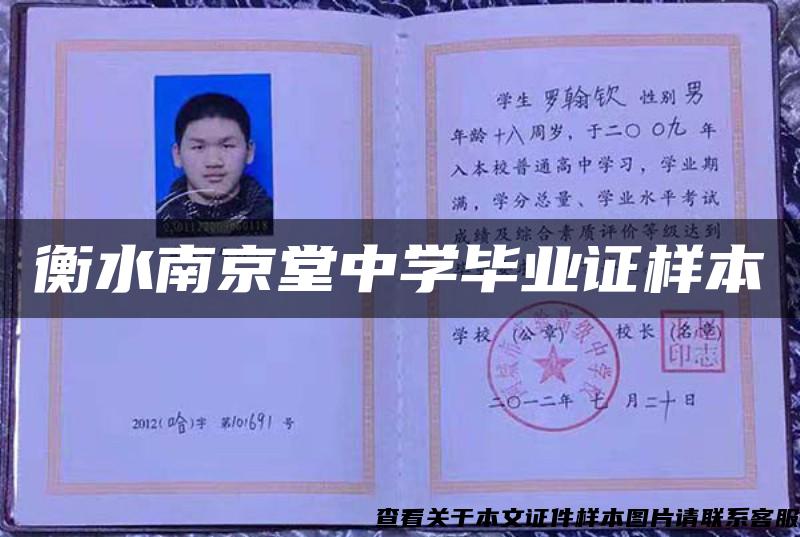 学生 罗翰钦 性别 男
年龄 十八 周岁，于二〇〇九 年
入本校普通高中学习，学业期
满，学分总量、学业水平考试
成绩及综合素质评价等级达到
衡水南京堂中学毕业证样本
学校 (公章) 校长 (名章)
高级中学校
印志
二〇一二年 七 月二十日
2012(哈)字 第101691 号
查看关于本文证件样本图片请联系客服